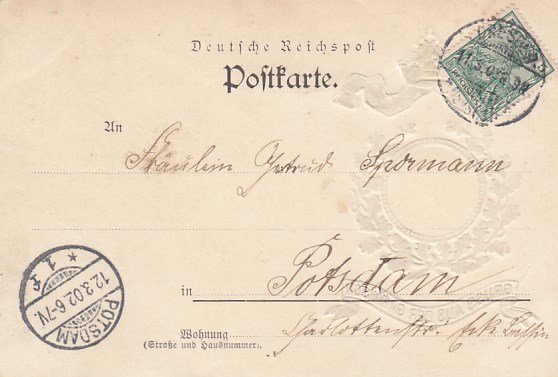 Deutsche Reichspost
Postkarte.
An
Fräulein Gertrud Spormann
in Potsdam
Wohnung Charlottenstr. Eck
(Straße und Hausnummer).
POTSDAM
12.3.02. 6-7V.
* 1. *